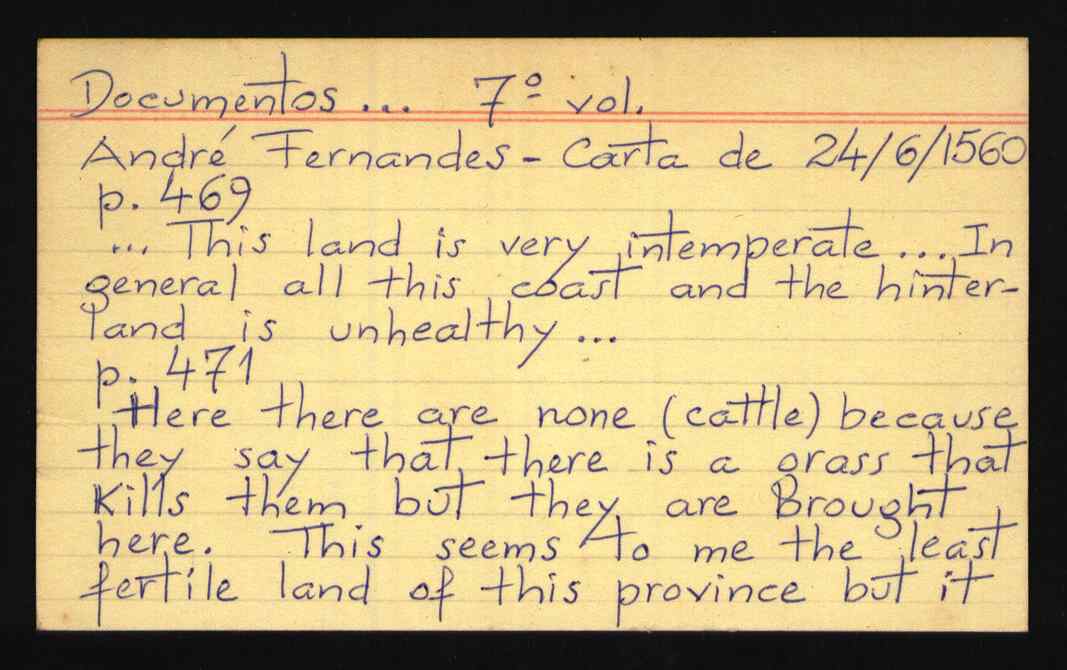 Documentos ... 7º vol.
André Fernandes - Carta de 24/6/1560
p. 469
... This land is very intemperate ... In
general all this coast and the hinter-
land is unhealthy ...
p. 471
Here there are none (cattle) because
they say that there is a grass that
Kills them but they are Brought
here. This seems to me the least
fertile land of this province but it